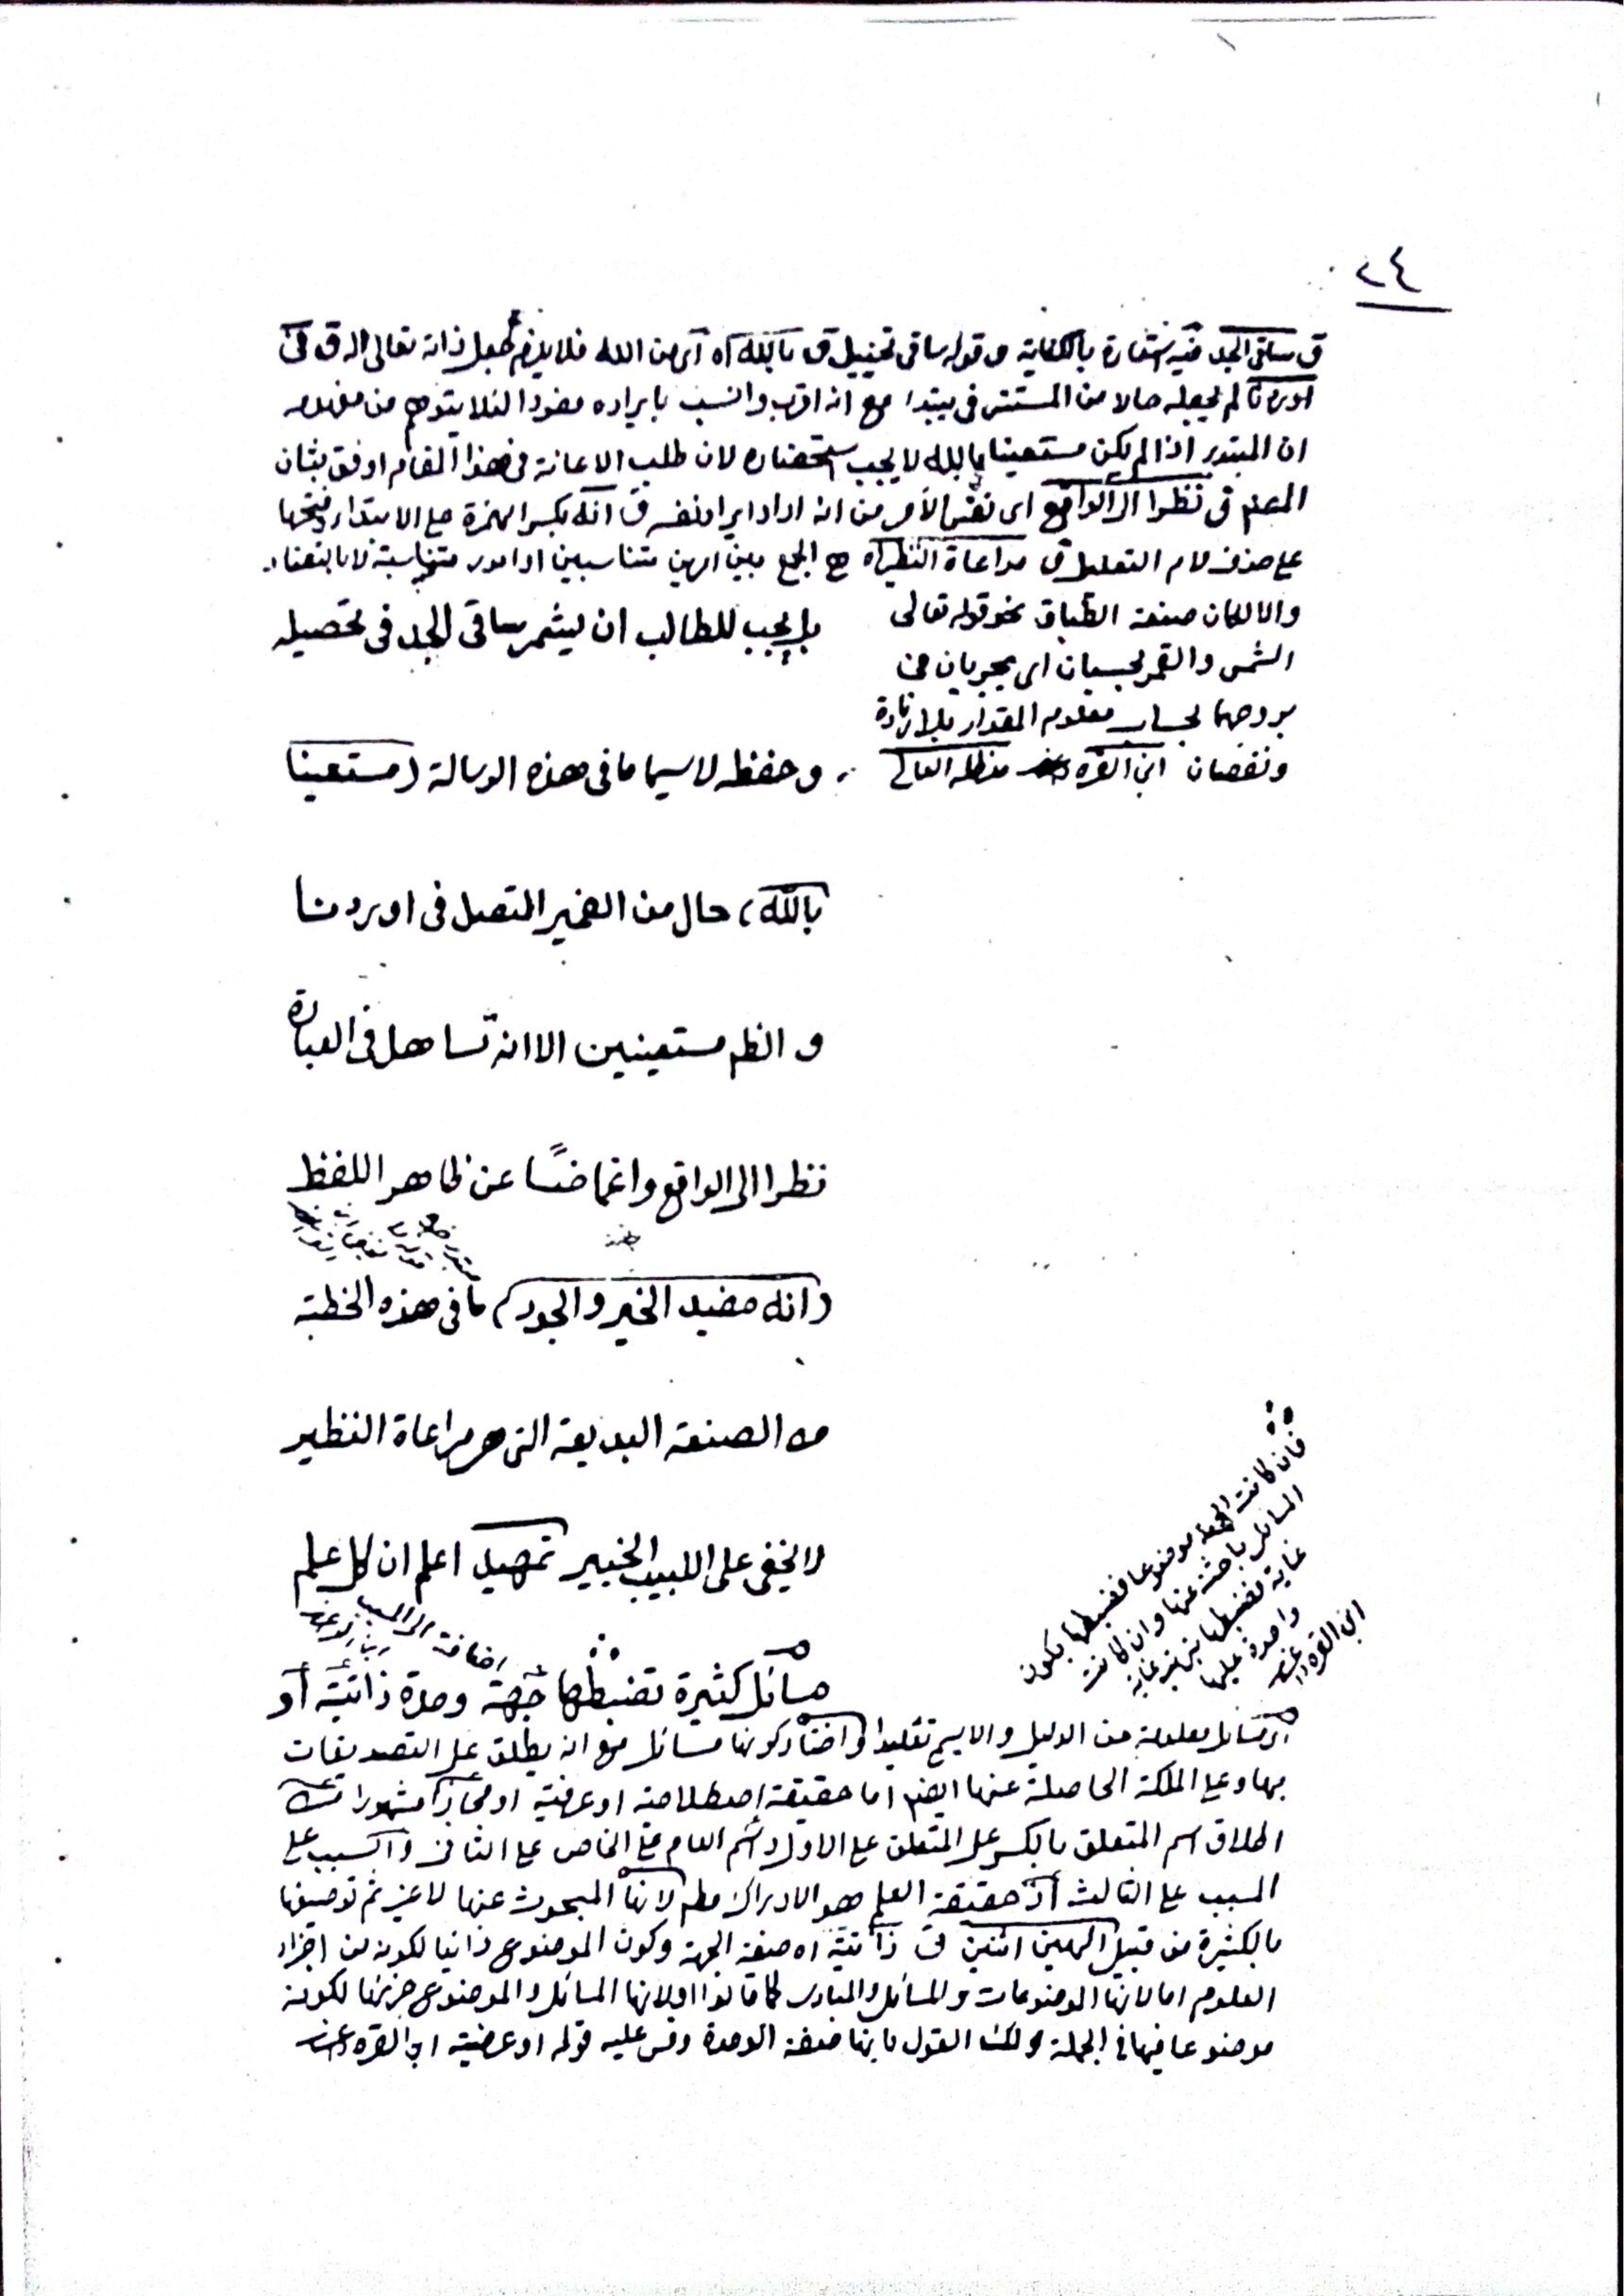 ٢٤
ق ساقى الجد فيه استعارة بالكناية وقوله ساقى تخييل ق بالله اه اى من الله فلا يلزم جعل ذاته تعالى الة ق فى
اوردنا لم يجعله حالا من المستتر فى يبتدا مع انه اقرب وانسب بايراده مفردا لئلا يتوهم من مفهومه
ان المبتدى اذا لم يكن مستعينا بالله لا يجب استحضاره لان طلب الاعانة فى هذا المقام اوفق بشان
المصنف ق نظرا الى الواقع اى نفس الامر من انه اراد ايراد نفسه ق انه بكسر الهمزة على الابتداء وفتحها
على حذف لام التعليل ق مراعاة النظير اه هى الجمع بين امرين متناسبين او امور متناسبة لا بالتضاد
والا لكان صنعة الطباق نحو قوله تعالى
الشمس والقمر بحسبان اى يجريان فى
بروجهما بحساب معلوم المقدار بلا زيادة
ونقصان ابن القره داغى مد ظله العالى
بل يجب للطالب ان يشمر ساقى الجد فى تحصيله
وحفظه لا سيما ما فى هذه الرسالة (مستعينا
بالله) حال من الضمير المتصل فى اوردنا
و الظ مستعينين الا انه تساهل فى العبارة
نظرا الى الواقع واغماضا عن ظاهر اللفظ
(انه مفيد الخير والجود) ما فى هذه الخطبة
من الصنعة البديعة التى هى مراعاة النظير
لا يخفى على اللبيب الخبير تمهيد اعلم ان كل علم
اضافة الى السبب
مسائل كثيرة تضبطها جهة وحدة ذاتية أو
فان كانت الجهة موضوعا فضبطها بكون
المسائل باحثة عنها وان كانت
غاية فضبطها بترتب غاية
واحدة عليها
ابن القره داغى
اى مسائل معلومة من الدليل والا يسمى تقليدا واختار كونها مسائل مع انه يطلق على التصديقات
بها وعلى الملكة الحاصلة عنها ايضا اما حقيقة اصطلاحية او عرفية او مجازا مشهورا من
اطلاق اسم المتعلق بالكسر على المتعلق على الاول واسم العام على الخاص على الثانى واسم السبب على
المسبب على الثالث اذ حقيقة العلم هو الادراك مطلقا لانها المبحوث عنها لا غير ثم توصيفها
بالكثيرة من قبيل الهين اثنين ق ذاتية اه صفة الجهة وكون الموضوع ذاتيا لكونه من اجزاء
العلوم اما لانها الموضوعات والمسائل والمبادى كما قالوا او لانها المسائل والموضوع جزئها لكونه
موضوعا فيها فى الجملة ولك القول بانها صفة الوحدة وقس عليه قوله او عرضية ابن القره داغى